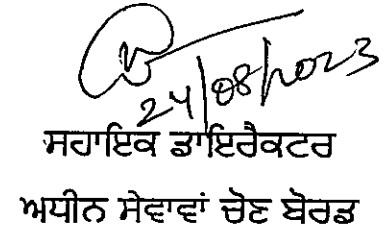 24/08/2023
ਸਹਾਇਕ ਡਾਇਰੈਕਟਰ
ਅਧੀਨ ਸੇਵਾਵਾਂ ਚੋਣ ਬੋਰਡ